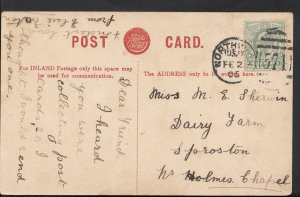 Fondest love
from Elsie
POST CARD.
For INLAND Postage only this space may
be used for communication.
The ADDRESS only to be
Dear Friend
I heard
you were
collecting post
cards so I
thought I would send
you one.
NORTHWI
FE 2
05
571
Miss M. E. Sherwin
Dairy Farm
Sproston
Nr Holmes Chapel